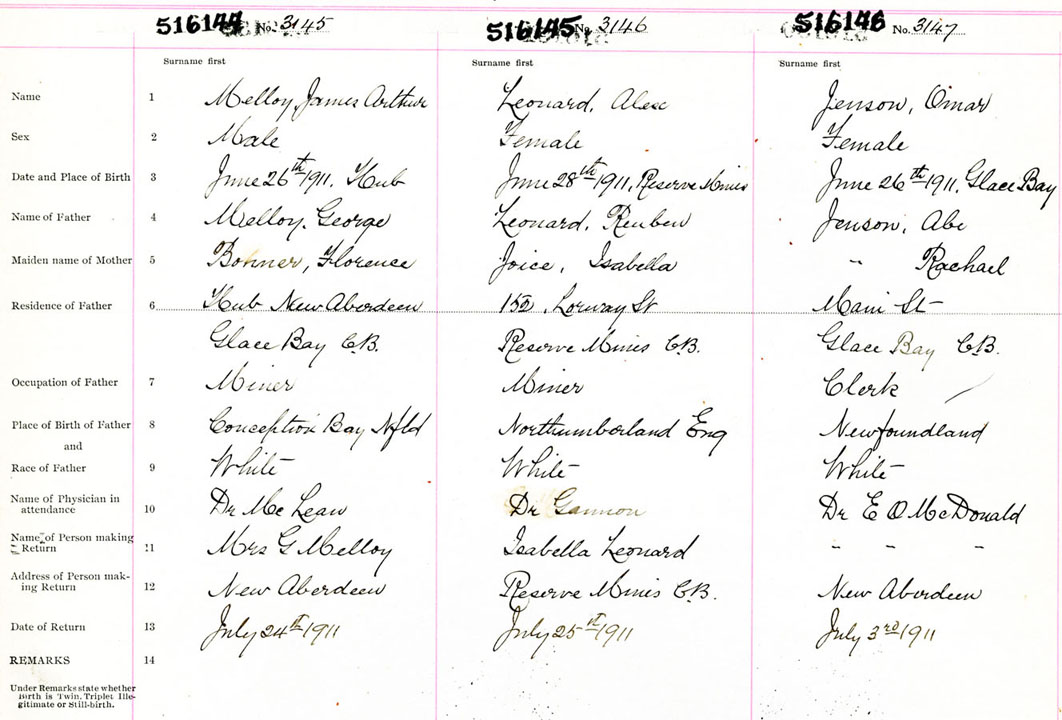 516144 No. 3145 516145 No. 3146 516146 No. 3147
Surname first Surname first Surname first
Name 1 Melloy, James Arthur Leonard, Alex Jenson, Omar
Sex 2 Male Female Female
Date and Place of Birth 3 June 26th 1911. Hub June 28th 1911. Reserve Mines June 26th 1911. Glace Bay
Name of Father 4 Melloy. George Leonard, Reuben Jenson, Abe
Maiden name of Mother 5 Bonner, Florence Joice, Isabella " Rachael
Residence of Father 6 Hub New Aberdeen 152, Lorway St Main St
Glace Bay C.B. Reserve Mines C.B. Glace Bay C.B.
Occupation of Father 7 Miner Miner Clerk
Place of Birth of Father 8 Conception Bay Nfld Northumborland Eng Newfoundland
and
Race of Father 9 White White White
Name of Physician in
attendance 10 Dr Mc Lean Dr Gannon Dr E O McDonald
Name of Person making
Return 11 Mrs G Melloy Isabella Leonard " " "
Address of Person mak-
ing Return 12 New Aberdeen Reserve Mines C.B. New Aberdeen
Date of Return 13 July 24th 1911 July 25th 1911 July 3rd 1911
REMARKS 14
Under Remarks state whether
Birth is Twin, Triplet Ille-
gitimate or Still-birth.